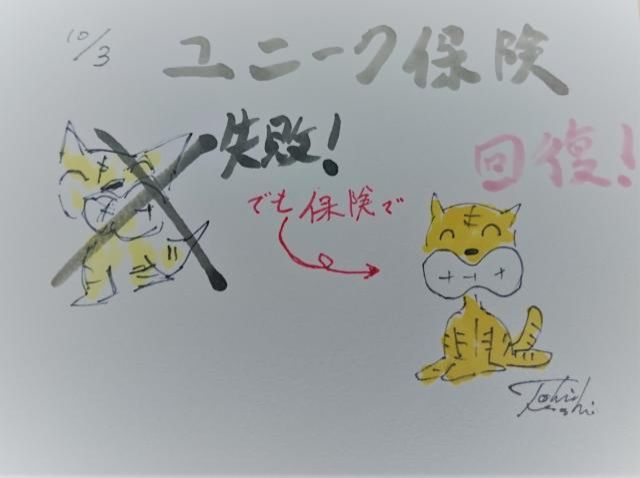 10/3
ユニーク保険
失敗!
回復!
でも保険で